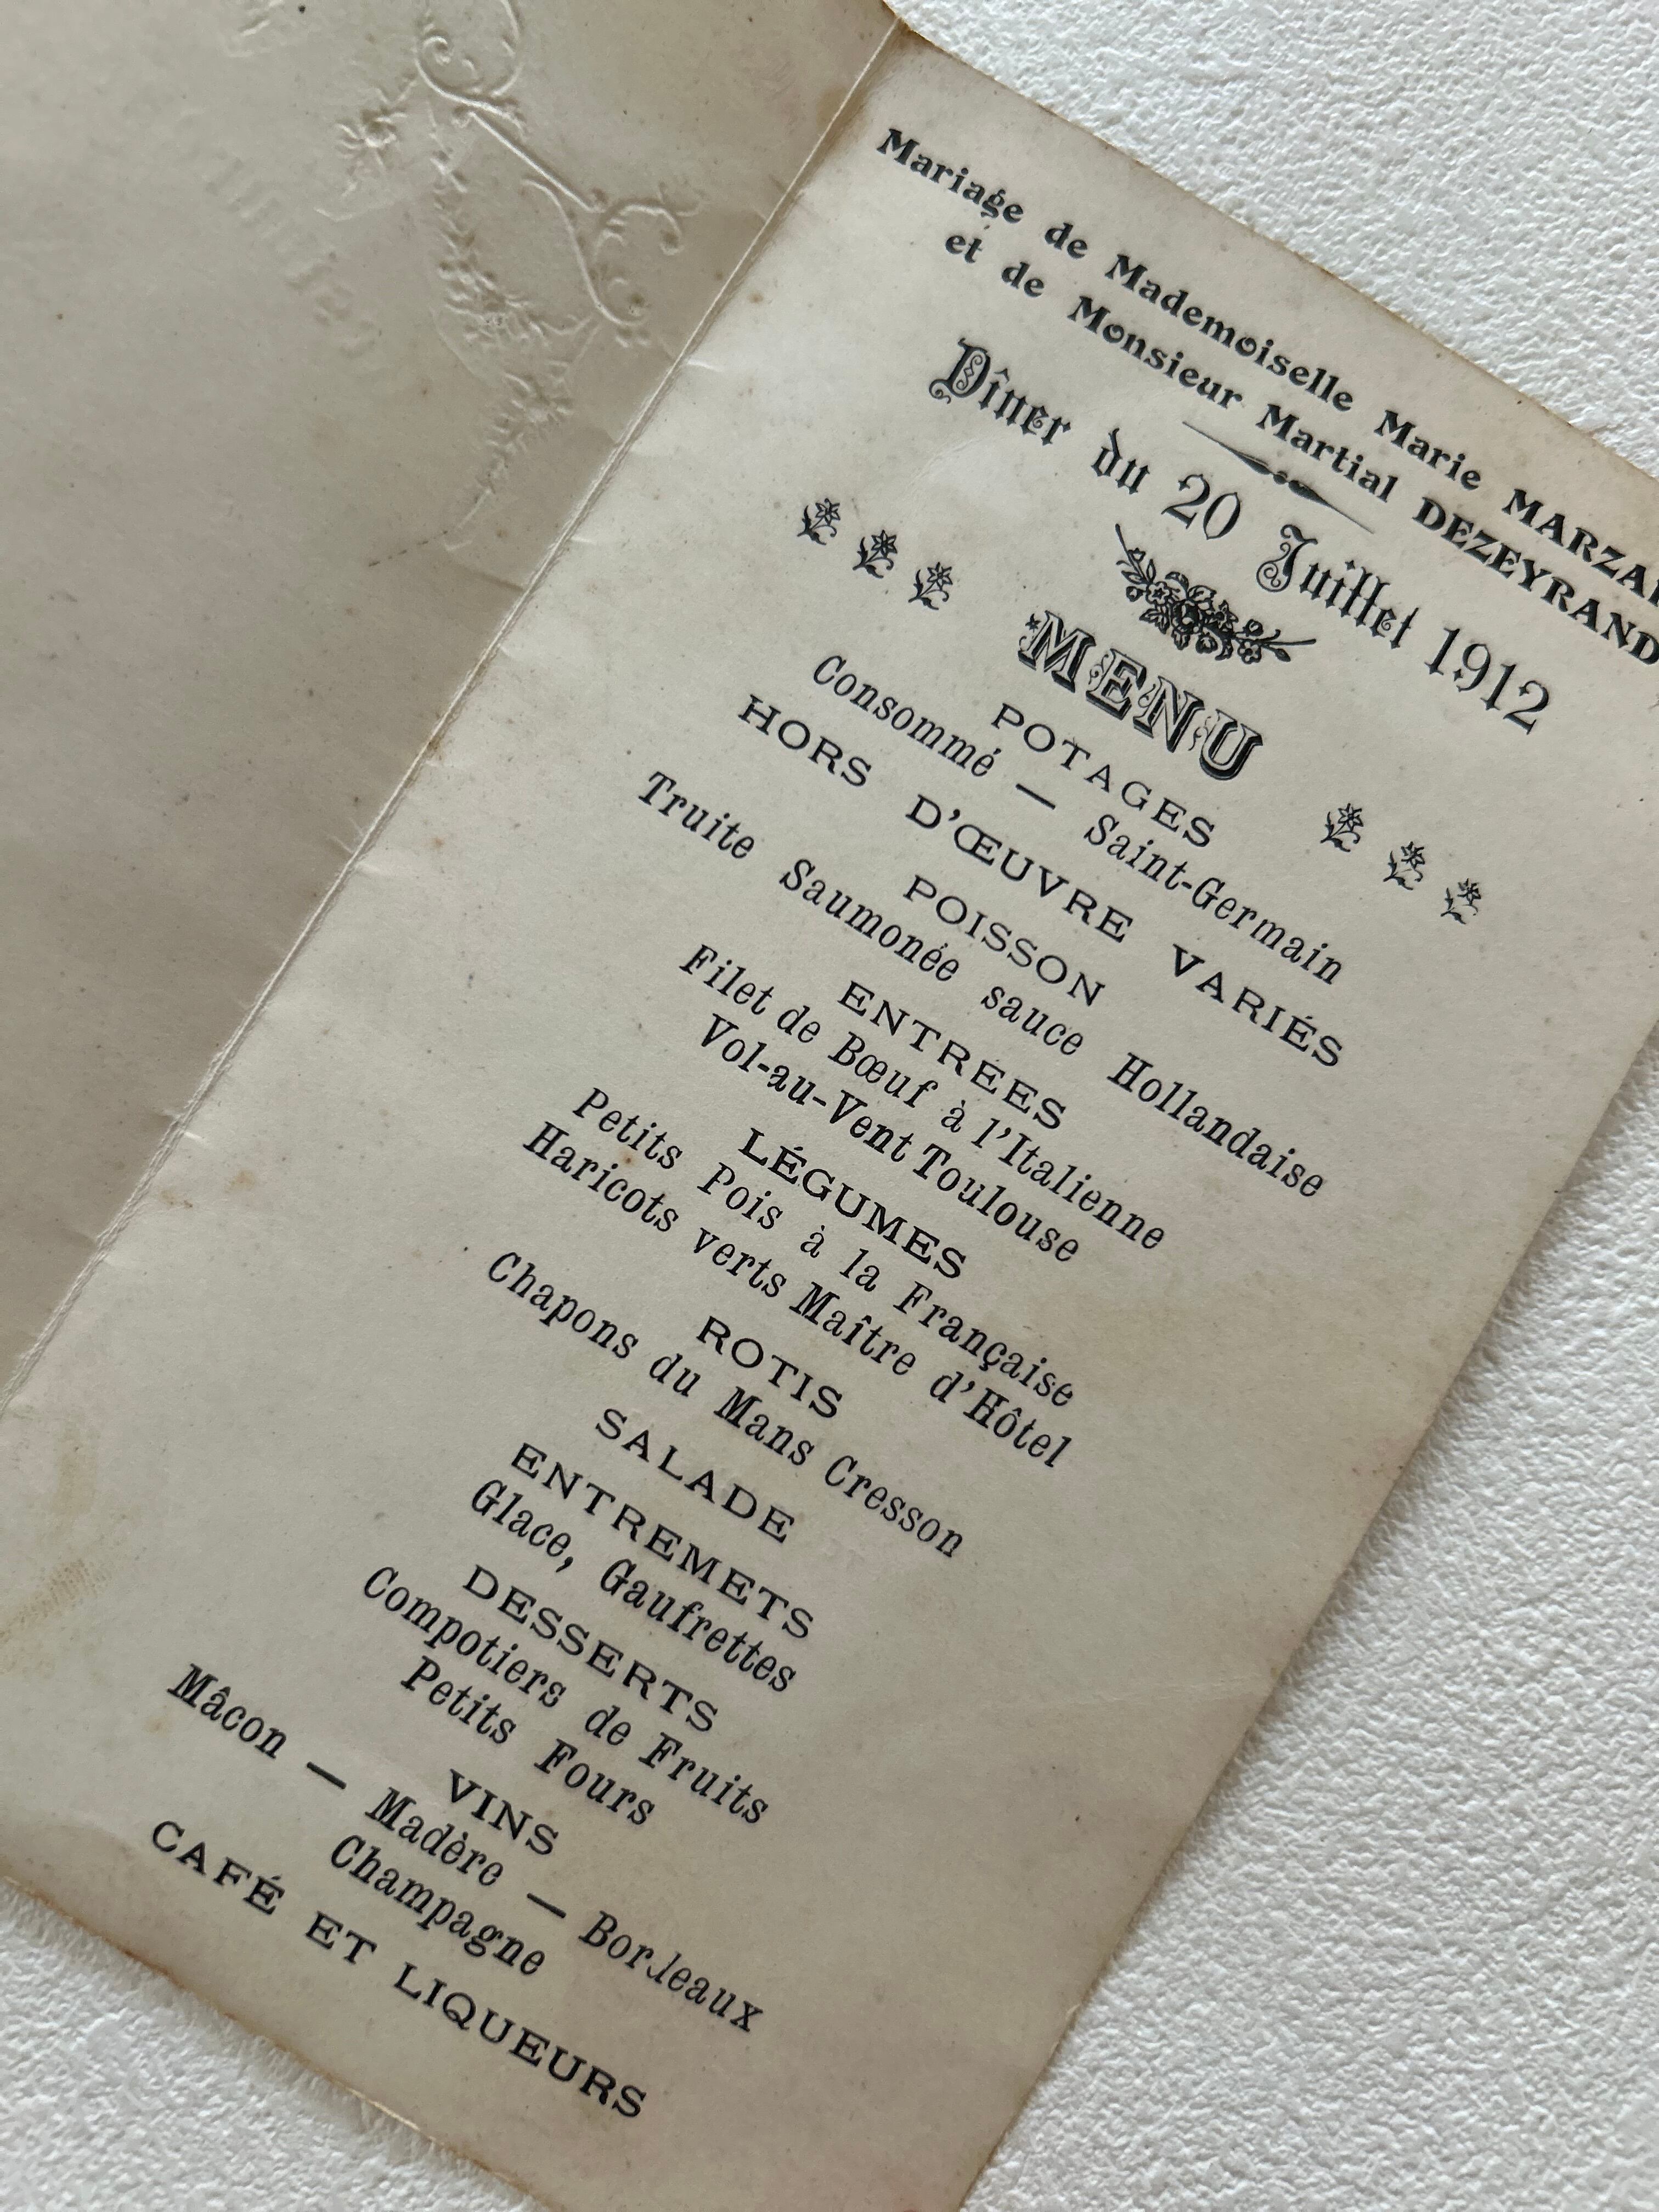 Mariage de Mademoiselle Marie
et de Monsieur Martial DEZEYRAND
Dîner du 20 Juillet 1912
MENU
POTAGES
Consommé — Saint-Germain
HORS D'ŒUVRE VARIÉS
POISSON
Truite Saumonée sauce Hollandaise
ENTRÉES
Filet de Bœuf à l'Italienne
Vol-au-Vent Toulouse
LÉGUMES
Petits Pois à la Française
Haricots verts Maître d'Hôtel
ROTIS
Chapons du Mans Cresson
SALADE
ENTREMETS
Glace, Gaufrettes
DESSERTS
Compotiers de Fruits
Petits Fours
VINS
Mâcon — Madère — Bordeaux
Champagne
CAFÉ ET LIQUEURS